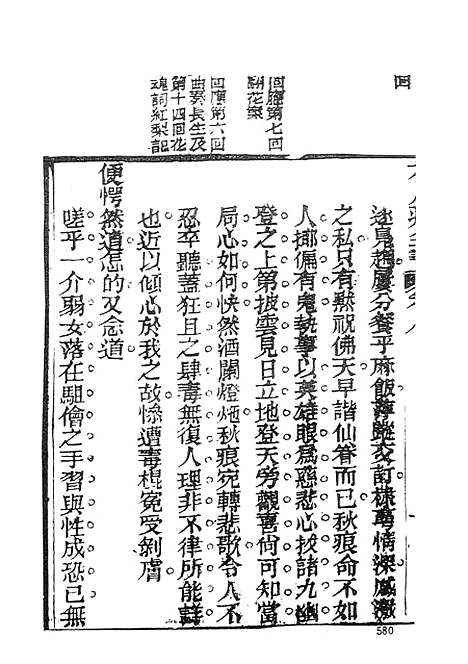 回
回應第七回
翻花案
回應第六回
曲奏長生及
第十四回花
魂詞紅梨記
分餐乎麻飯萍蹤交訂樣萬情深感激
之私只有默祝佛天早諧仙眷而已秋痕命不如
人揶偏有鬼執事以英雄眼為慈悲心拔諸九幽
登之上第披雲見日立地登天旁觀喜尚可知當
局心如何快然酒闌燈炧秋痕宛轉悲歌令人不
忍卒聽蓋狂且之肆毒無復人理非不律所能詳
也近以傾心於我之故慘遭毒棍冤受剝膚
便愕然道怎的又念道
嗟乎一介弱女落在駔儈之手習與性成恐已無
580